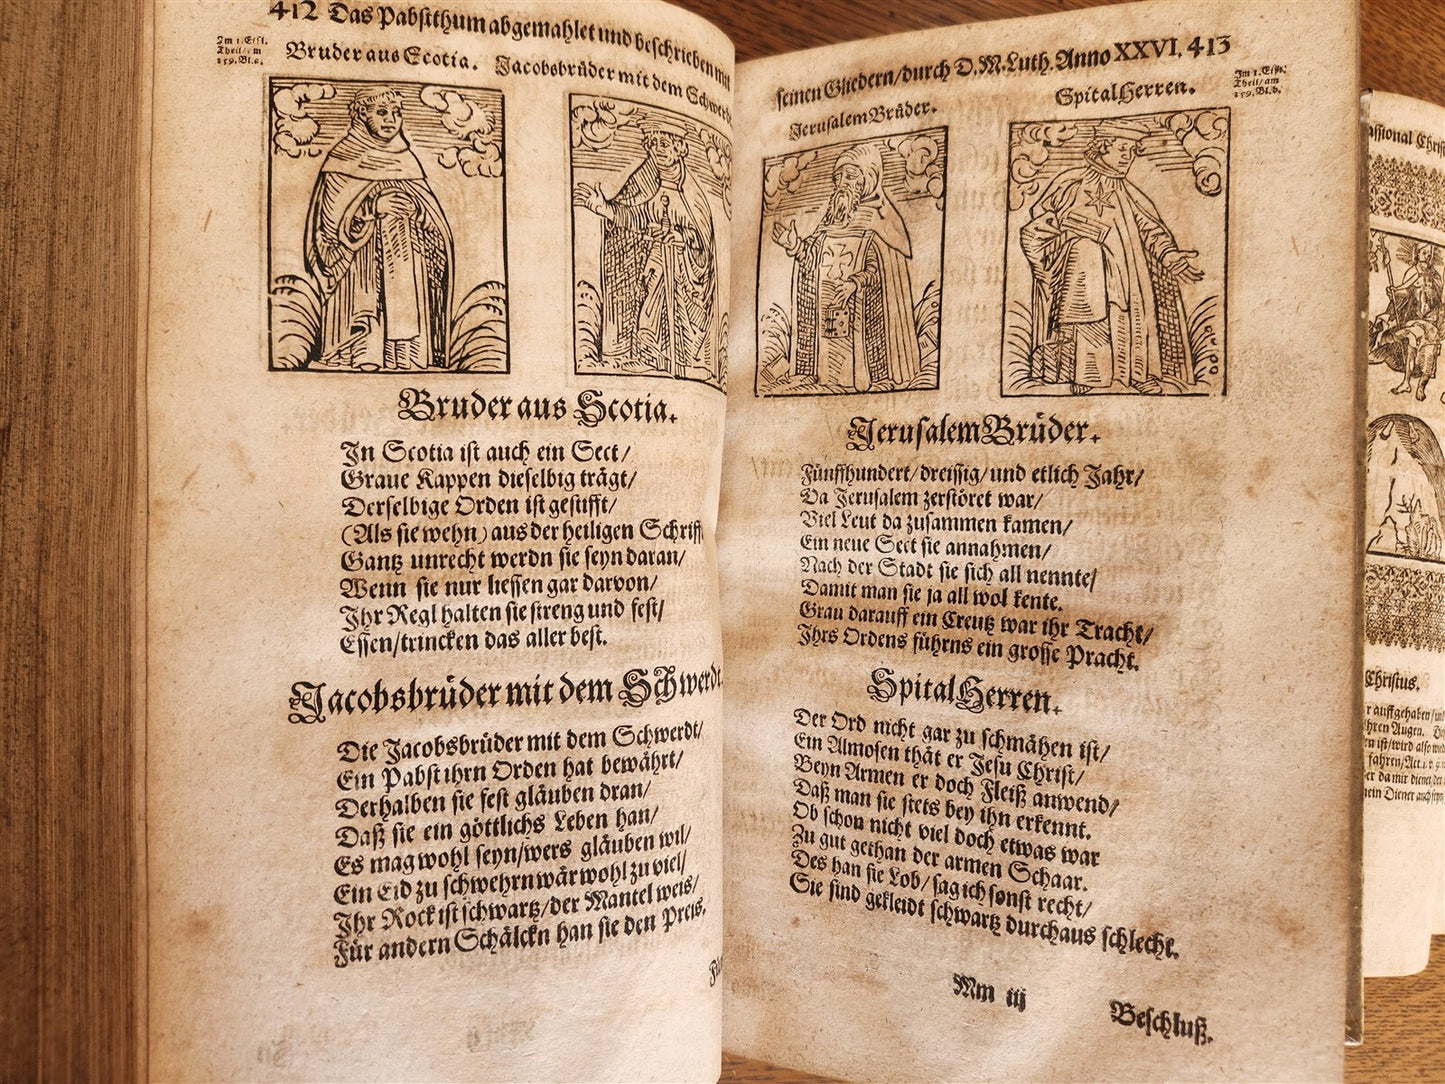 412 Das Pabstthum abgemahlet und beschrieben mit
Im 1. Eißl.
Theil/am
159. Bl. a.
Bruder aus Scotia. Jacobsbrüder mit dem Schwerdt
Bruder aus Scotia.
In Scotia ist auch ein Sect/
Graue Kappen dieselbig trägt/
Derselbige Orden ist gestifft/
(Als sie wehn) aus der heiligen Schrifft
Gantz unrecht werdn sie seyn daran/
Wenn sie nur liessen gar darvon/
Ihr Regl halten sie streng und fest/
Essen/trincken das aller best.
Jacobsbrüder mit dem Schwerdt.
Die Jacobsbrüder mit dem Schwerdt/
Ein Pabst ihrn Orden hat bewährt/
Derhalben sie fest gläuben dran/
Daß sie ein göttlichs Leben han/
Es mag wohl seyn/wers gläuben wil/
Ein Eid zu schwehrn wär wohl zu viel/
Ihr Rock ist schwartz/der Mantel weis/
Für andern Schälckn han sie den Preis.
seinen Gliedern/durch D. M. Luth. Anno XXVI. 413
Im 1. Eißl.
Theil/am
159. Bl. b.
JerusalemBrüder. SpitalHerren.
JerusalemBrüder.
Fünffhundert/dreissig/und etlich Jahr/
Da Jerusalem zerstöret war/
Viel Leut da zusammen kamen/
Ein neue Sect sie annahmen/
Nach der Stadt sie sich all nennte/
Damit man sie ja all wol kente.
Grau darauff ein Creutz war ihr Tracht/
Ihrs Ordens führns ein grosse Pracht.
SpitalHerren.
Der Ord nicht gar zu schmähen ist/
Ein Almosen thät er Jesu Christ/
Beyn Armen er doch Fleiß anwend/
Daß man sie stets bey ihn erkennt.
Ob schon nicht viel doch etwas war
Zu gut gethan der armen Schaar.
Des han sie Lob/sag ich sonst recht/
Sie sind gekleidt schwartz durchaus schlecht.
Mm iij
Beschluß.
Christus.